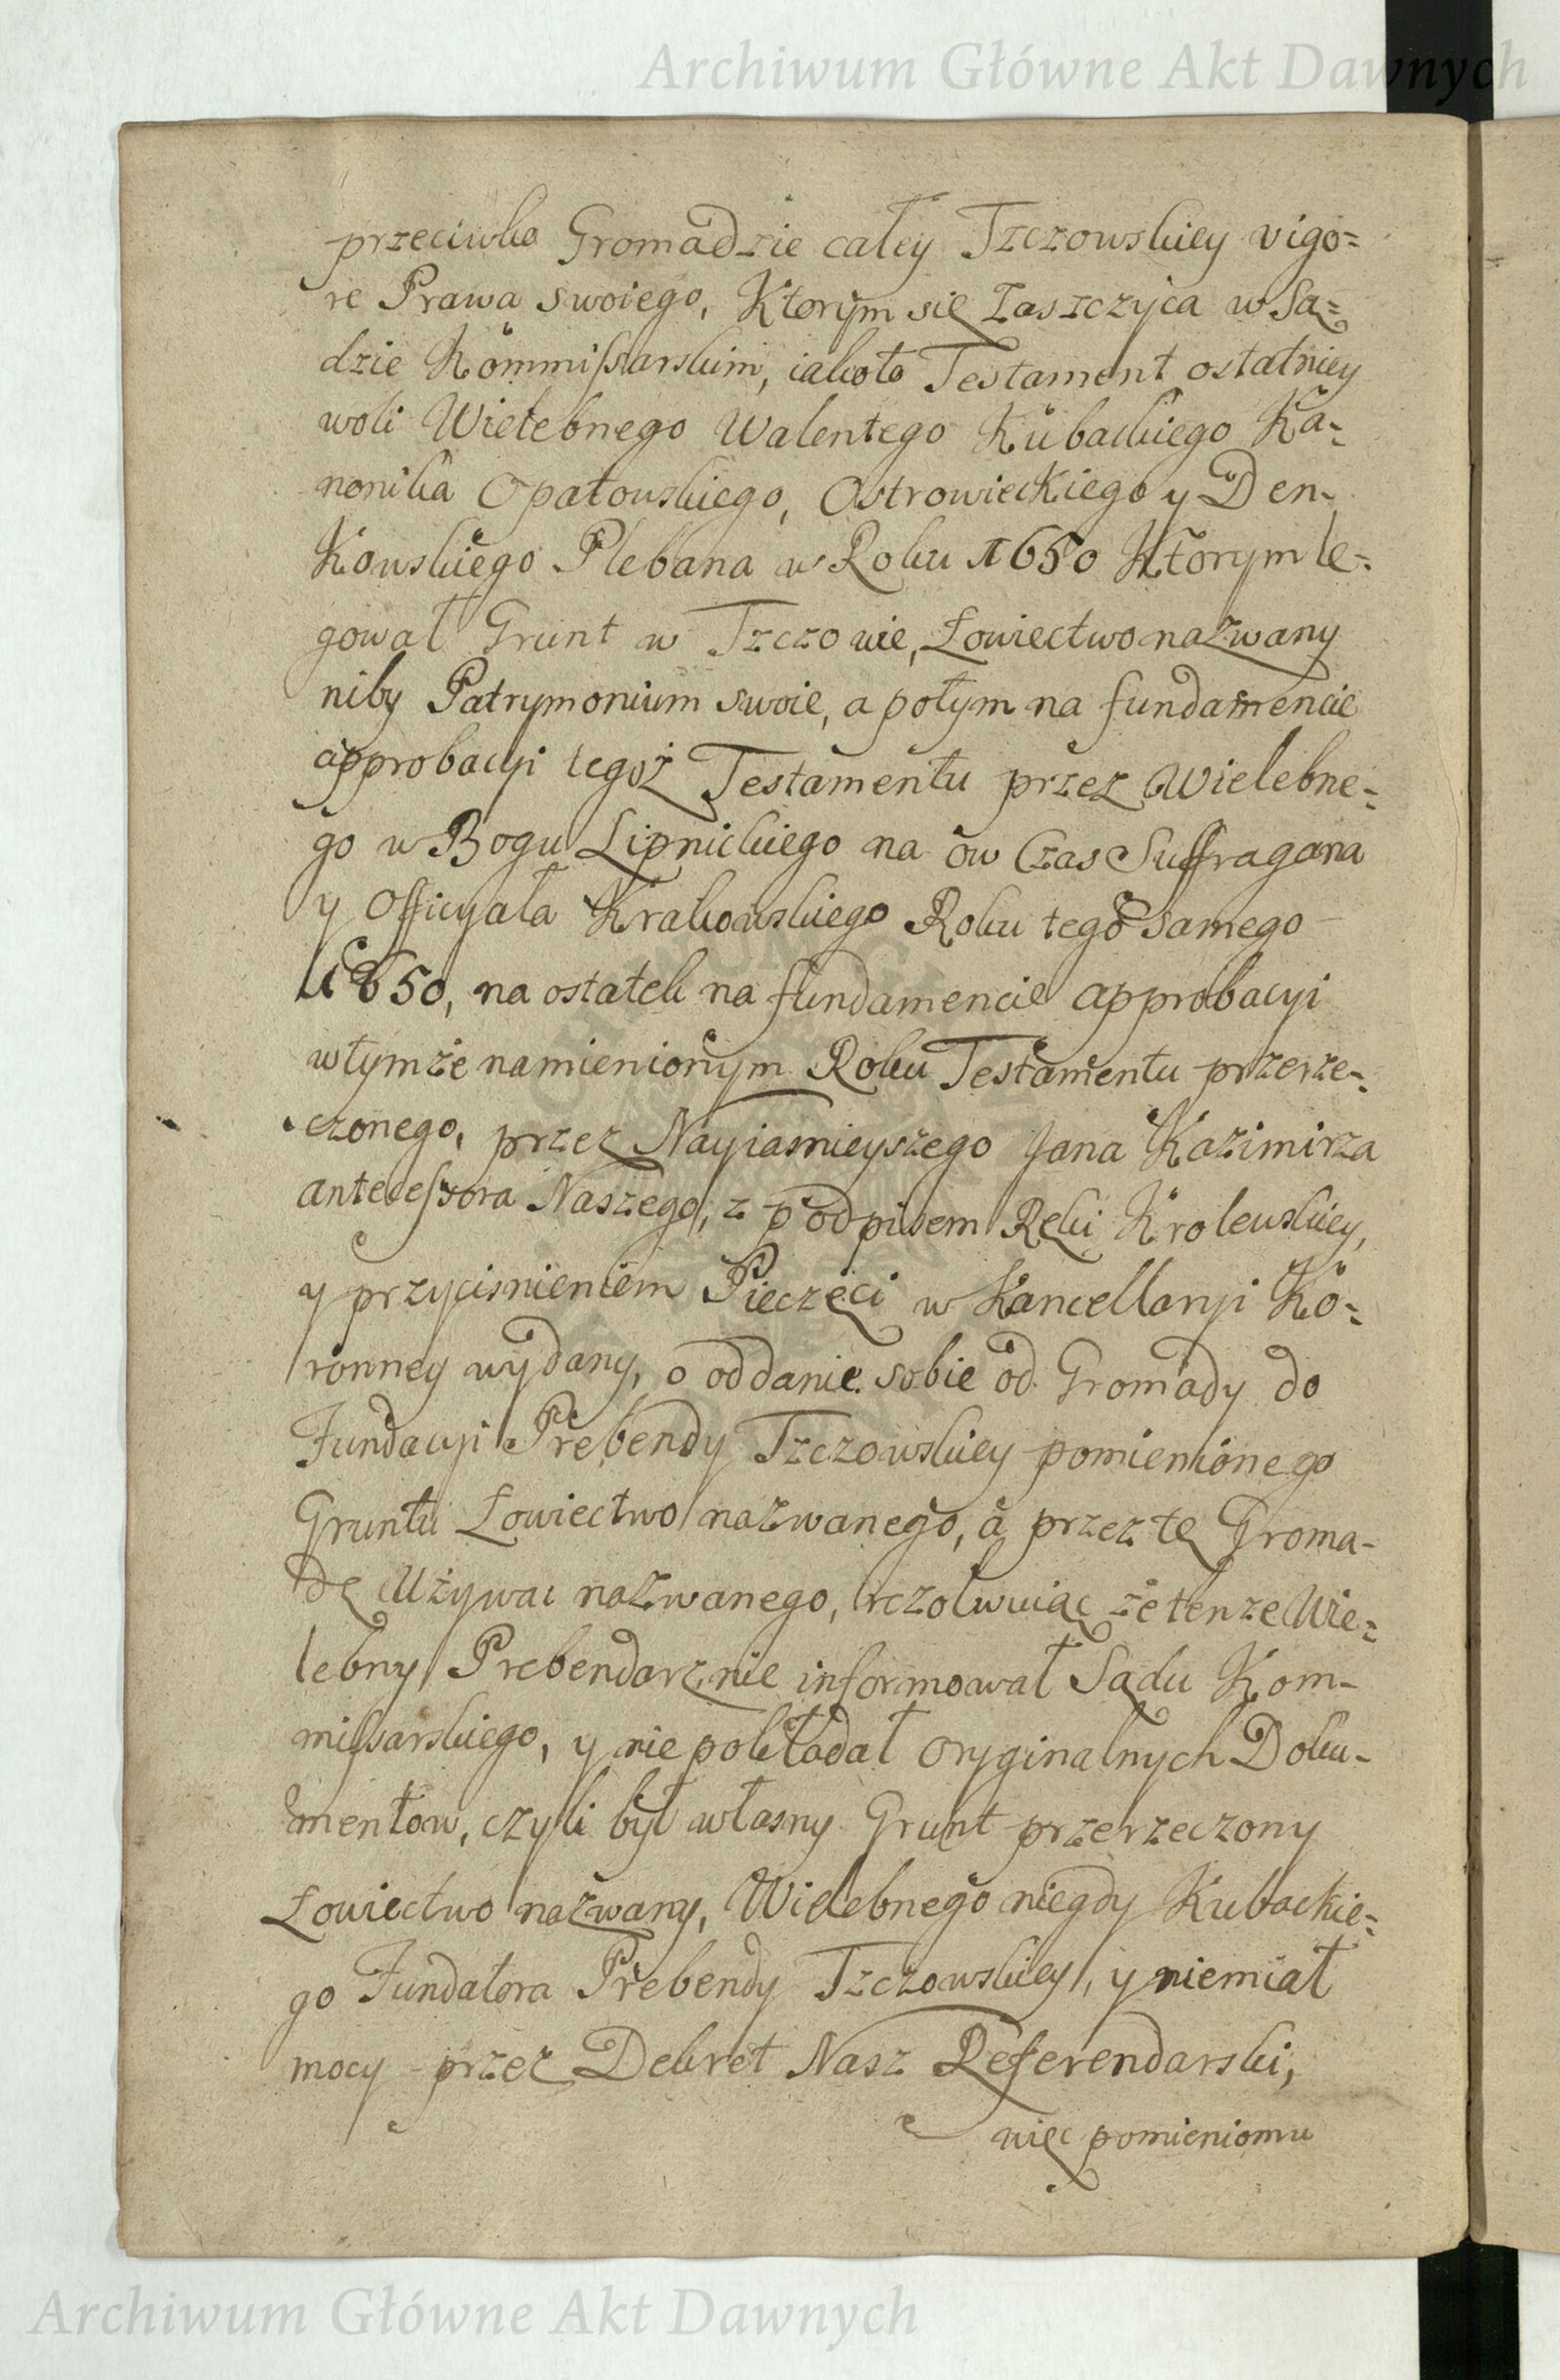 Archiwum Główne Akt Dawnych
przeciwko Gromadzie całey Tzczowskiey vigo=
re Prawa swoiego, Ktorym się zaszczyca w Są=
dzie Kommissarskim, iakoto Testament ostatniey
woli Wielebnego Walentego Kubackiego Ka=
nonika Opatowskiego, Ostrowieckiego y Den=
Kowskiego Plebana w Roku 1650 Ktorym le=
gował Grunt w Tzczowie, Łowiectwo nazwany
niby Patrymonium swoie, a potym na fundamencie
approbacyi tegoż Testamentu przez Wielebne=
go w Bogu Lipnickiego na ow Czas Suffragana
y Officyała Krakowskiego Roku tego samego
1650, na ostatek na fundamencie approbacyi
wtymże namienionym Roku Testamentu przerze=
czonego, przez Nayiasnieyszego Jana Kazimirza
antecessora Naszego, z podpisem Ręki Krolewskiey,
y przycisnieniem Pieczęci w Kancellaryi Ko=
ronney wydany, o oddanie sobie od Gromady do
Fundacyi Prebendy Tzczowskiey pomienionego
Gruntu Łowiectwo nazwanego, a przez tę Groma-
dę Używać nazwanego, rezolwuiąc że tenze Wie=
lebny Prebendarz nie informował Sądu Kom-
missarskiego, y nie pokładał Oryginalnych Doku-
mentow, czyli był własny Grunt przerzeczony
Łowiectwo nazwany, Wielebnego niegdy Kubackie=
go Fundatora Prebendy Tzczowskiey, y niemiał
mocy przez Dekret Nasz Referendarski,
więc pomieniomu
Archiwum Główne Akt Dawnych